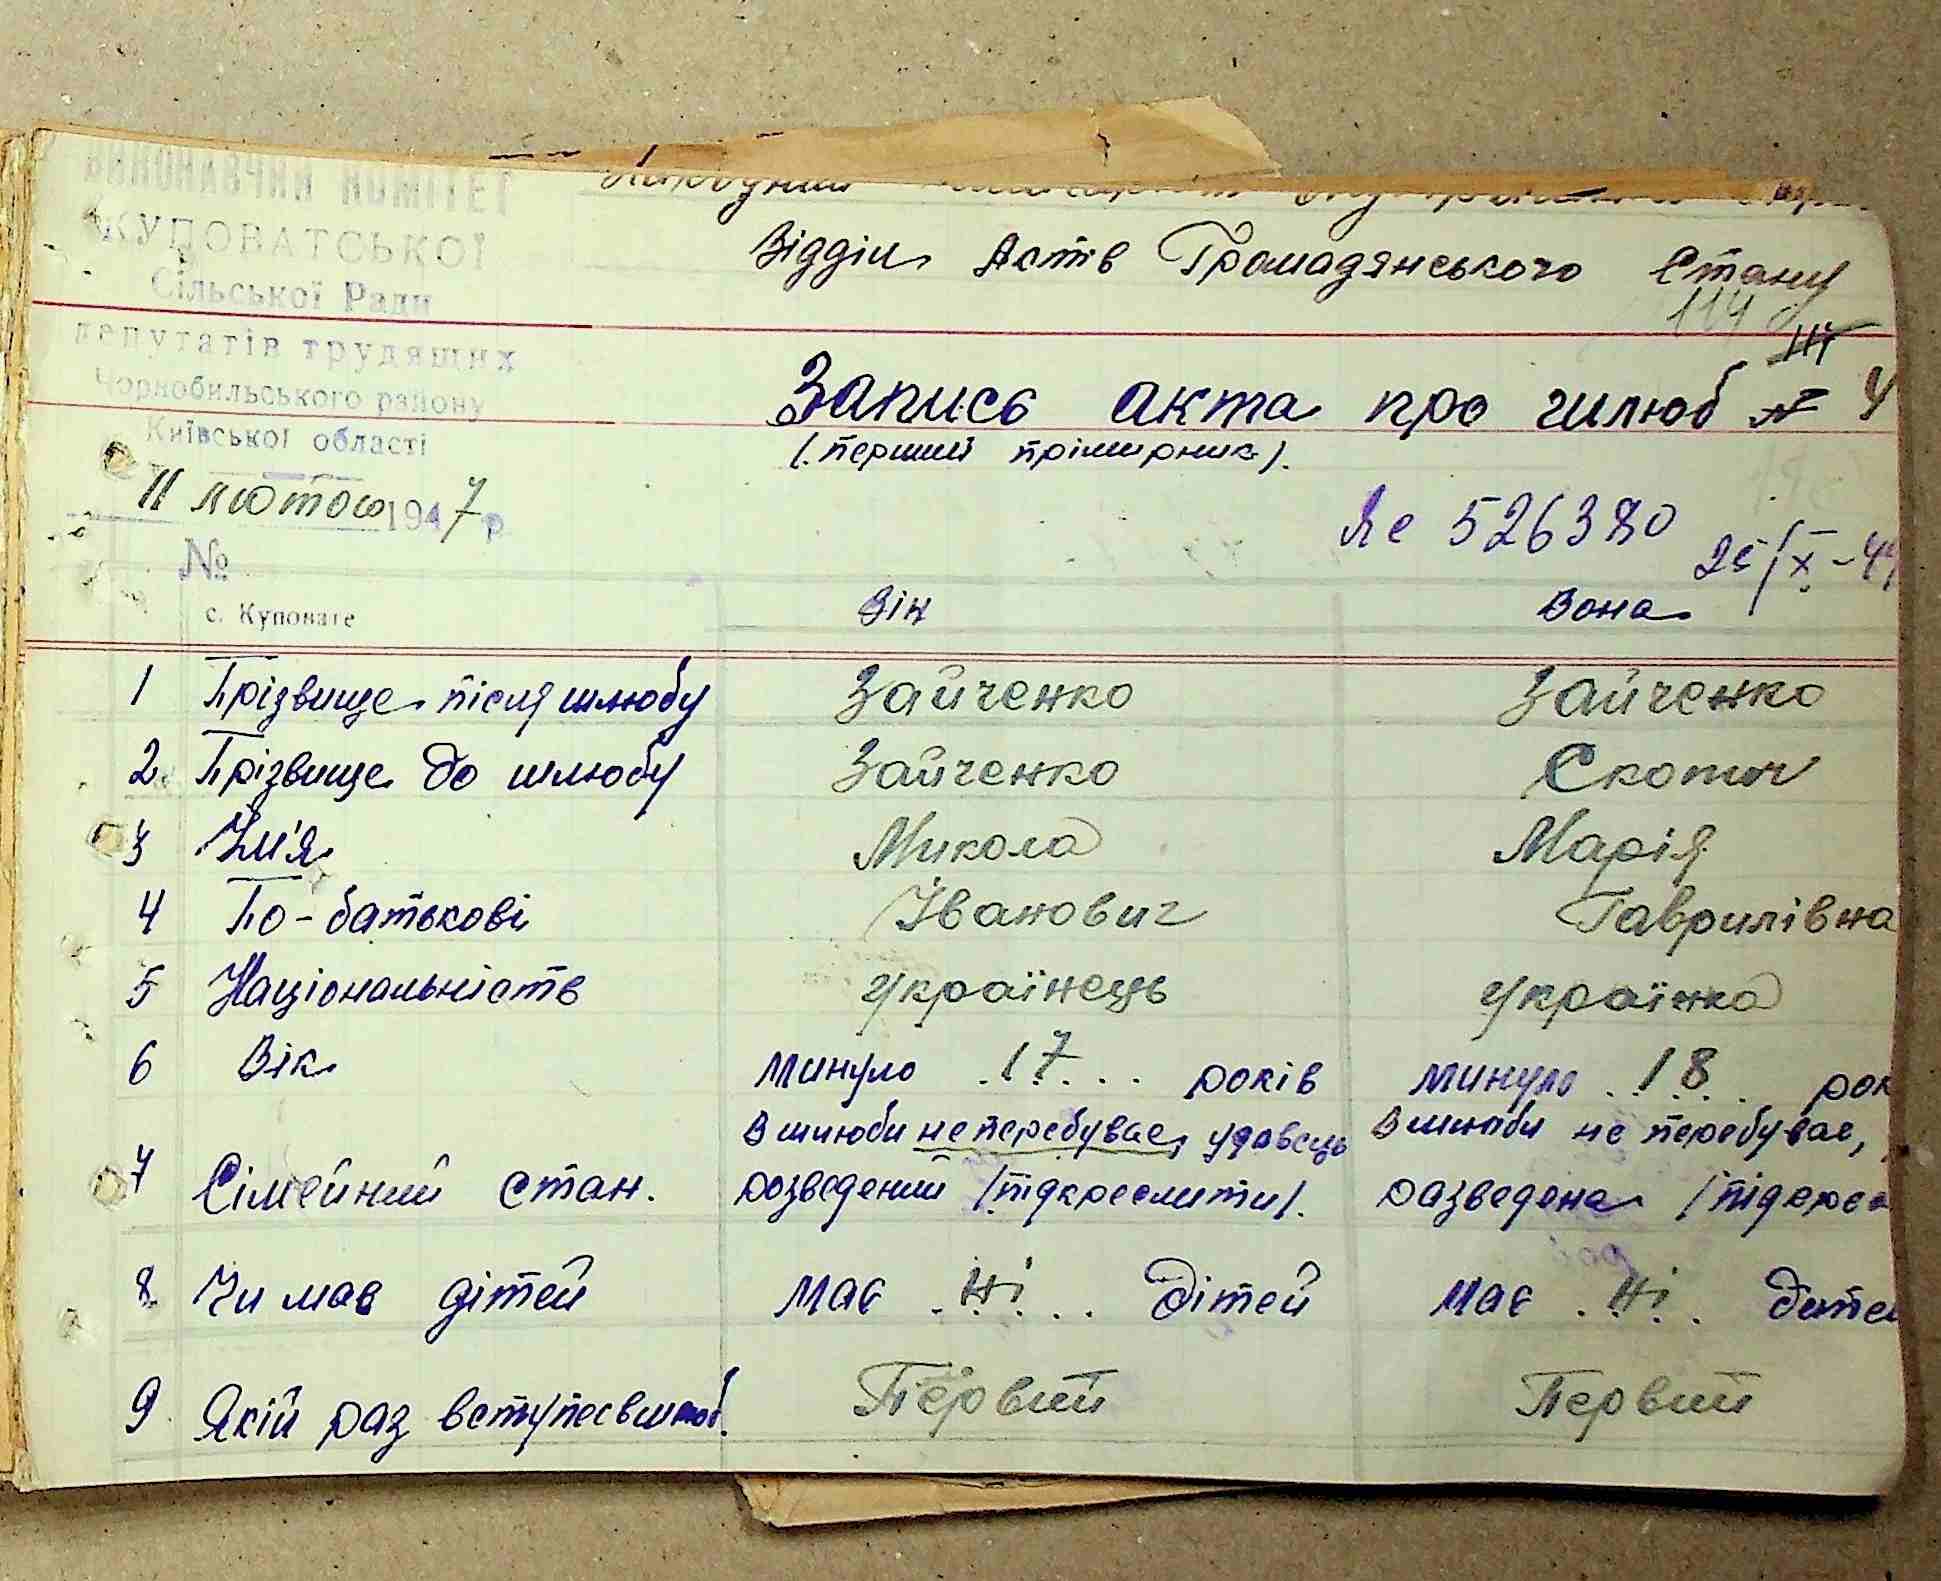 ВИКОНАВЧИЙ КОМІТЕТ
КУПОВАТСЬКОЇ
Сільської Ради
депутатів трудящих
Чорнобильського району
Київської області
11 лютого 1947 р.
№
с. Куповате
Відділ Актів Громадянського Стану
114
Запись акта про шлюб № 4
(перший прімирник).
Яе 526380
Він Вона
1 Прізвище після шлюбу Зайченко Зайченко
2 Прізвище до шлюбу Зайченко Скопич
3 Им'я Микола Марія
4 По-батькові Іванович Гаврилівна
5 Національність Українець Українка
6 Вік минуло 17 років минуло 18 рок
7 Сімейний стан. В шлюби не перебуває, удовець В шлюби не перебуває,
розведений /підкреслити/. разведена /підкрес
8 Чи має дітей має ні дітей має ні дитей
9 Якій раз вступає в шлюб. Первий Первий